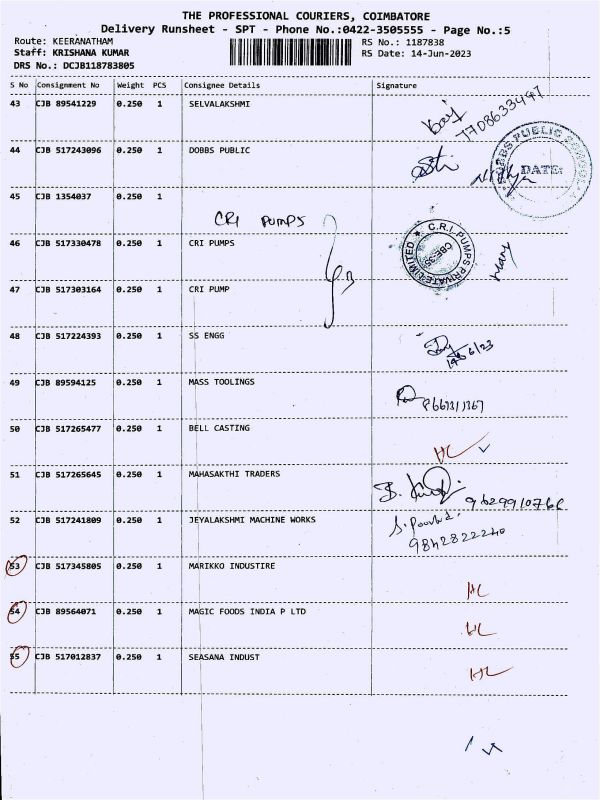 THE PROFESSIONAL COURIERS, COIMBATORE
Delivery Runsheet - SPT - Phone No.:0422-3505555 - Page No.:5
Route: KEERANATHAM RS No.: 1187838
Staff: KRISHANA KUMAR RS Date: 14-Jun-2023
DRS No.: DCJB118783805
S No Consignment No Weight PCS Consignee Details Signature
43 CJB 89541229 0.250 1 SELVALAKSHMI
7708633497
44 CJB 517243096 0.250 1 DOBBS PUBLIC
DOBBS PUBLIC SCHOOL
DATE:
45 CJB 1354037 0.250 1
CRI PUMPS
46 CJB 517330478 0.250 1 CRI PUMPS
C.R.I. PUMPS PRIVATE LIMITED
47 CJB 517303164 0.250 1 CRI PUMP
48 CJB 517224393 0.250 1 SS ENGG
49 CJB 89594125 0.250 1 MASS TOOLINGS
50 CJB 517265477 0.250 1 BELL CASTING
HL
51 CJB 517265645 0.250 1 MAHASAKTHI TRADERS
52 CJB 517241809 0.250 1 JEYALAKSHMI MACHINE WORKS
9842822240
53 CJB 517345805 0.250 1 MARIKKO INDUSTIRE
HL
54 CJB 89564071 0.250 1 MAGIC FOODS INDIA P LTD
HL
55 CJB 517012837 0.250 1 SEASANA INDUST
HL